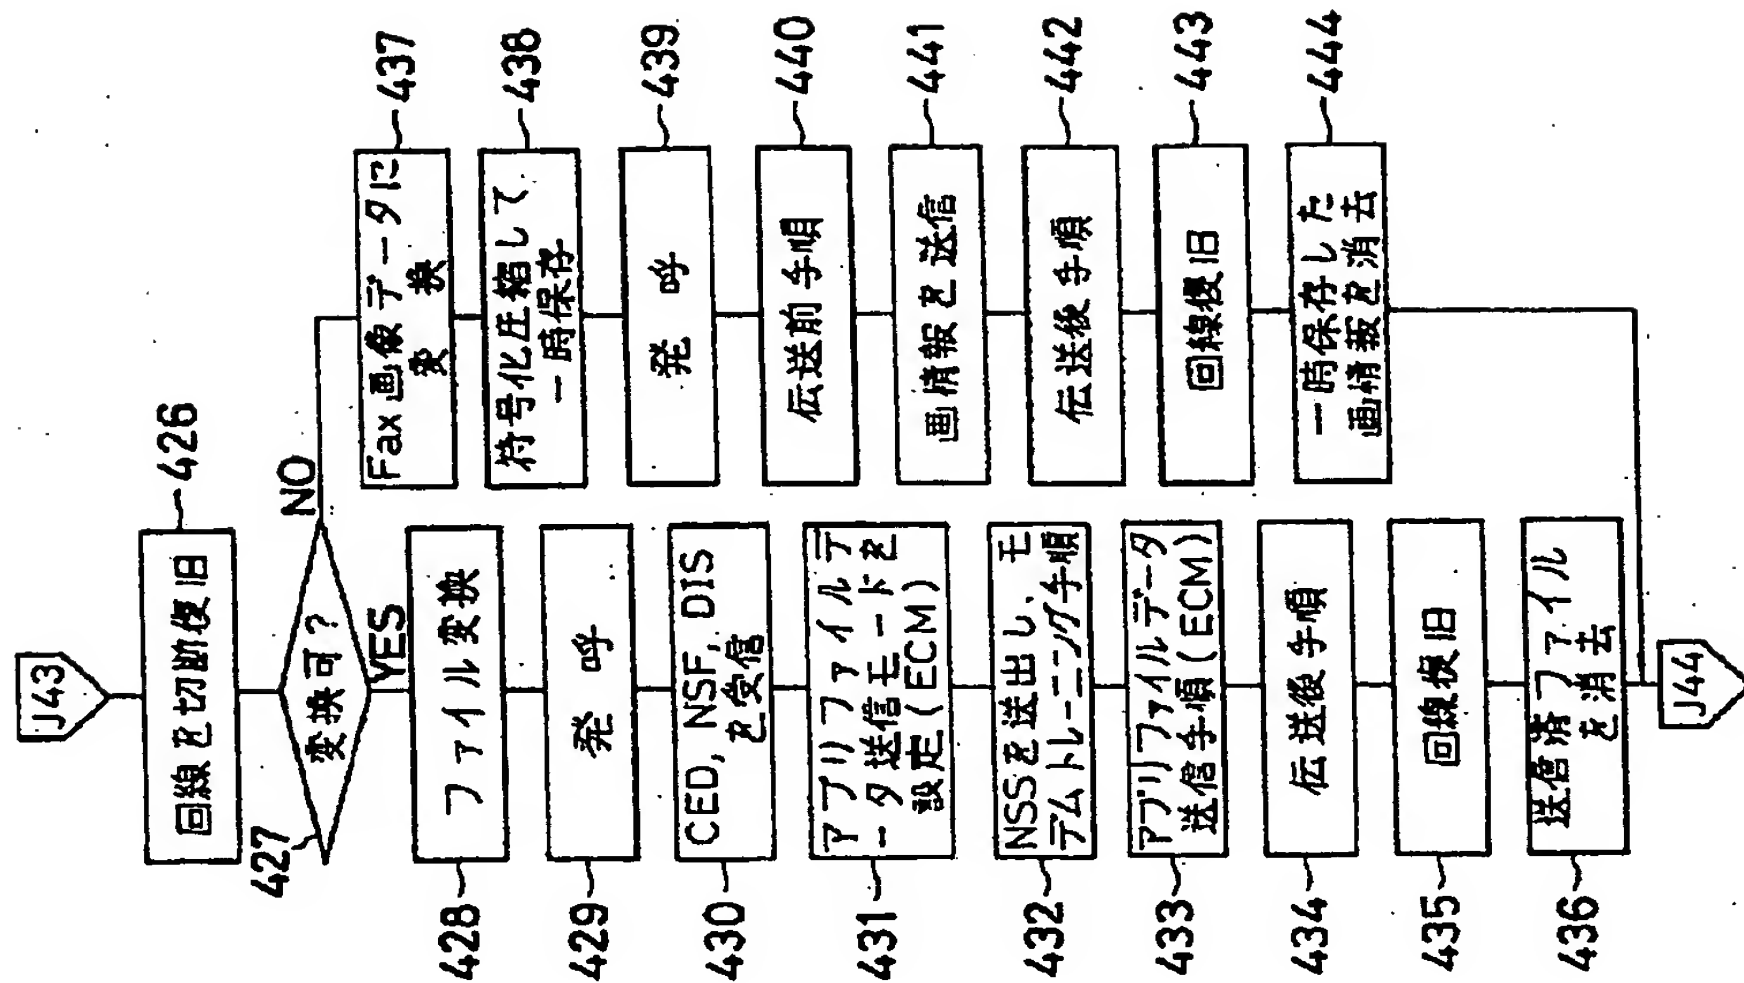 J43
回線を切断復旧
426
変換可?
427
NO
YES
ファイル変換
428
発 呼
429
CED, NSF, DIS
を受信
430
アプリファイルデ
ータ送信モードを
設定(ECM)
431
NSSを送出し、モ
デムトレーニング手順
432
アプリファイルデータ
送信手順(ECM)
433
伝送後手順
434
回線復旧
435
送信済ファイル
を消去
436
Fax画像データに
変 換
437
符号化圧縮して
一時保存
438
発 呼
439
伝送前手順
440
画情報を送信
441
伝送後手順
442
回線復旧
443
一時保存した
画情報を消去
444
J44